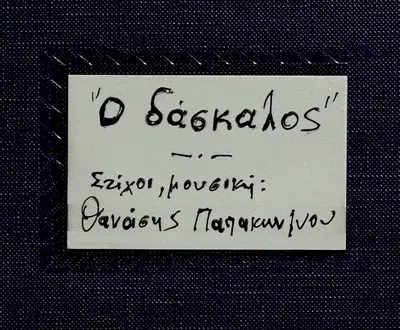 "Ο δάσκαλος"
Στίχοι, μουσική:
Θανάσης Παπακων/νου